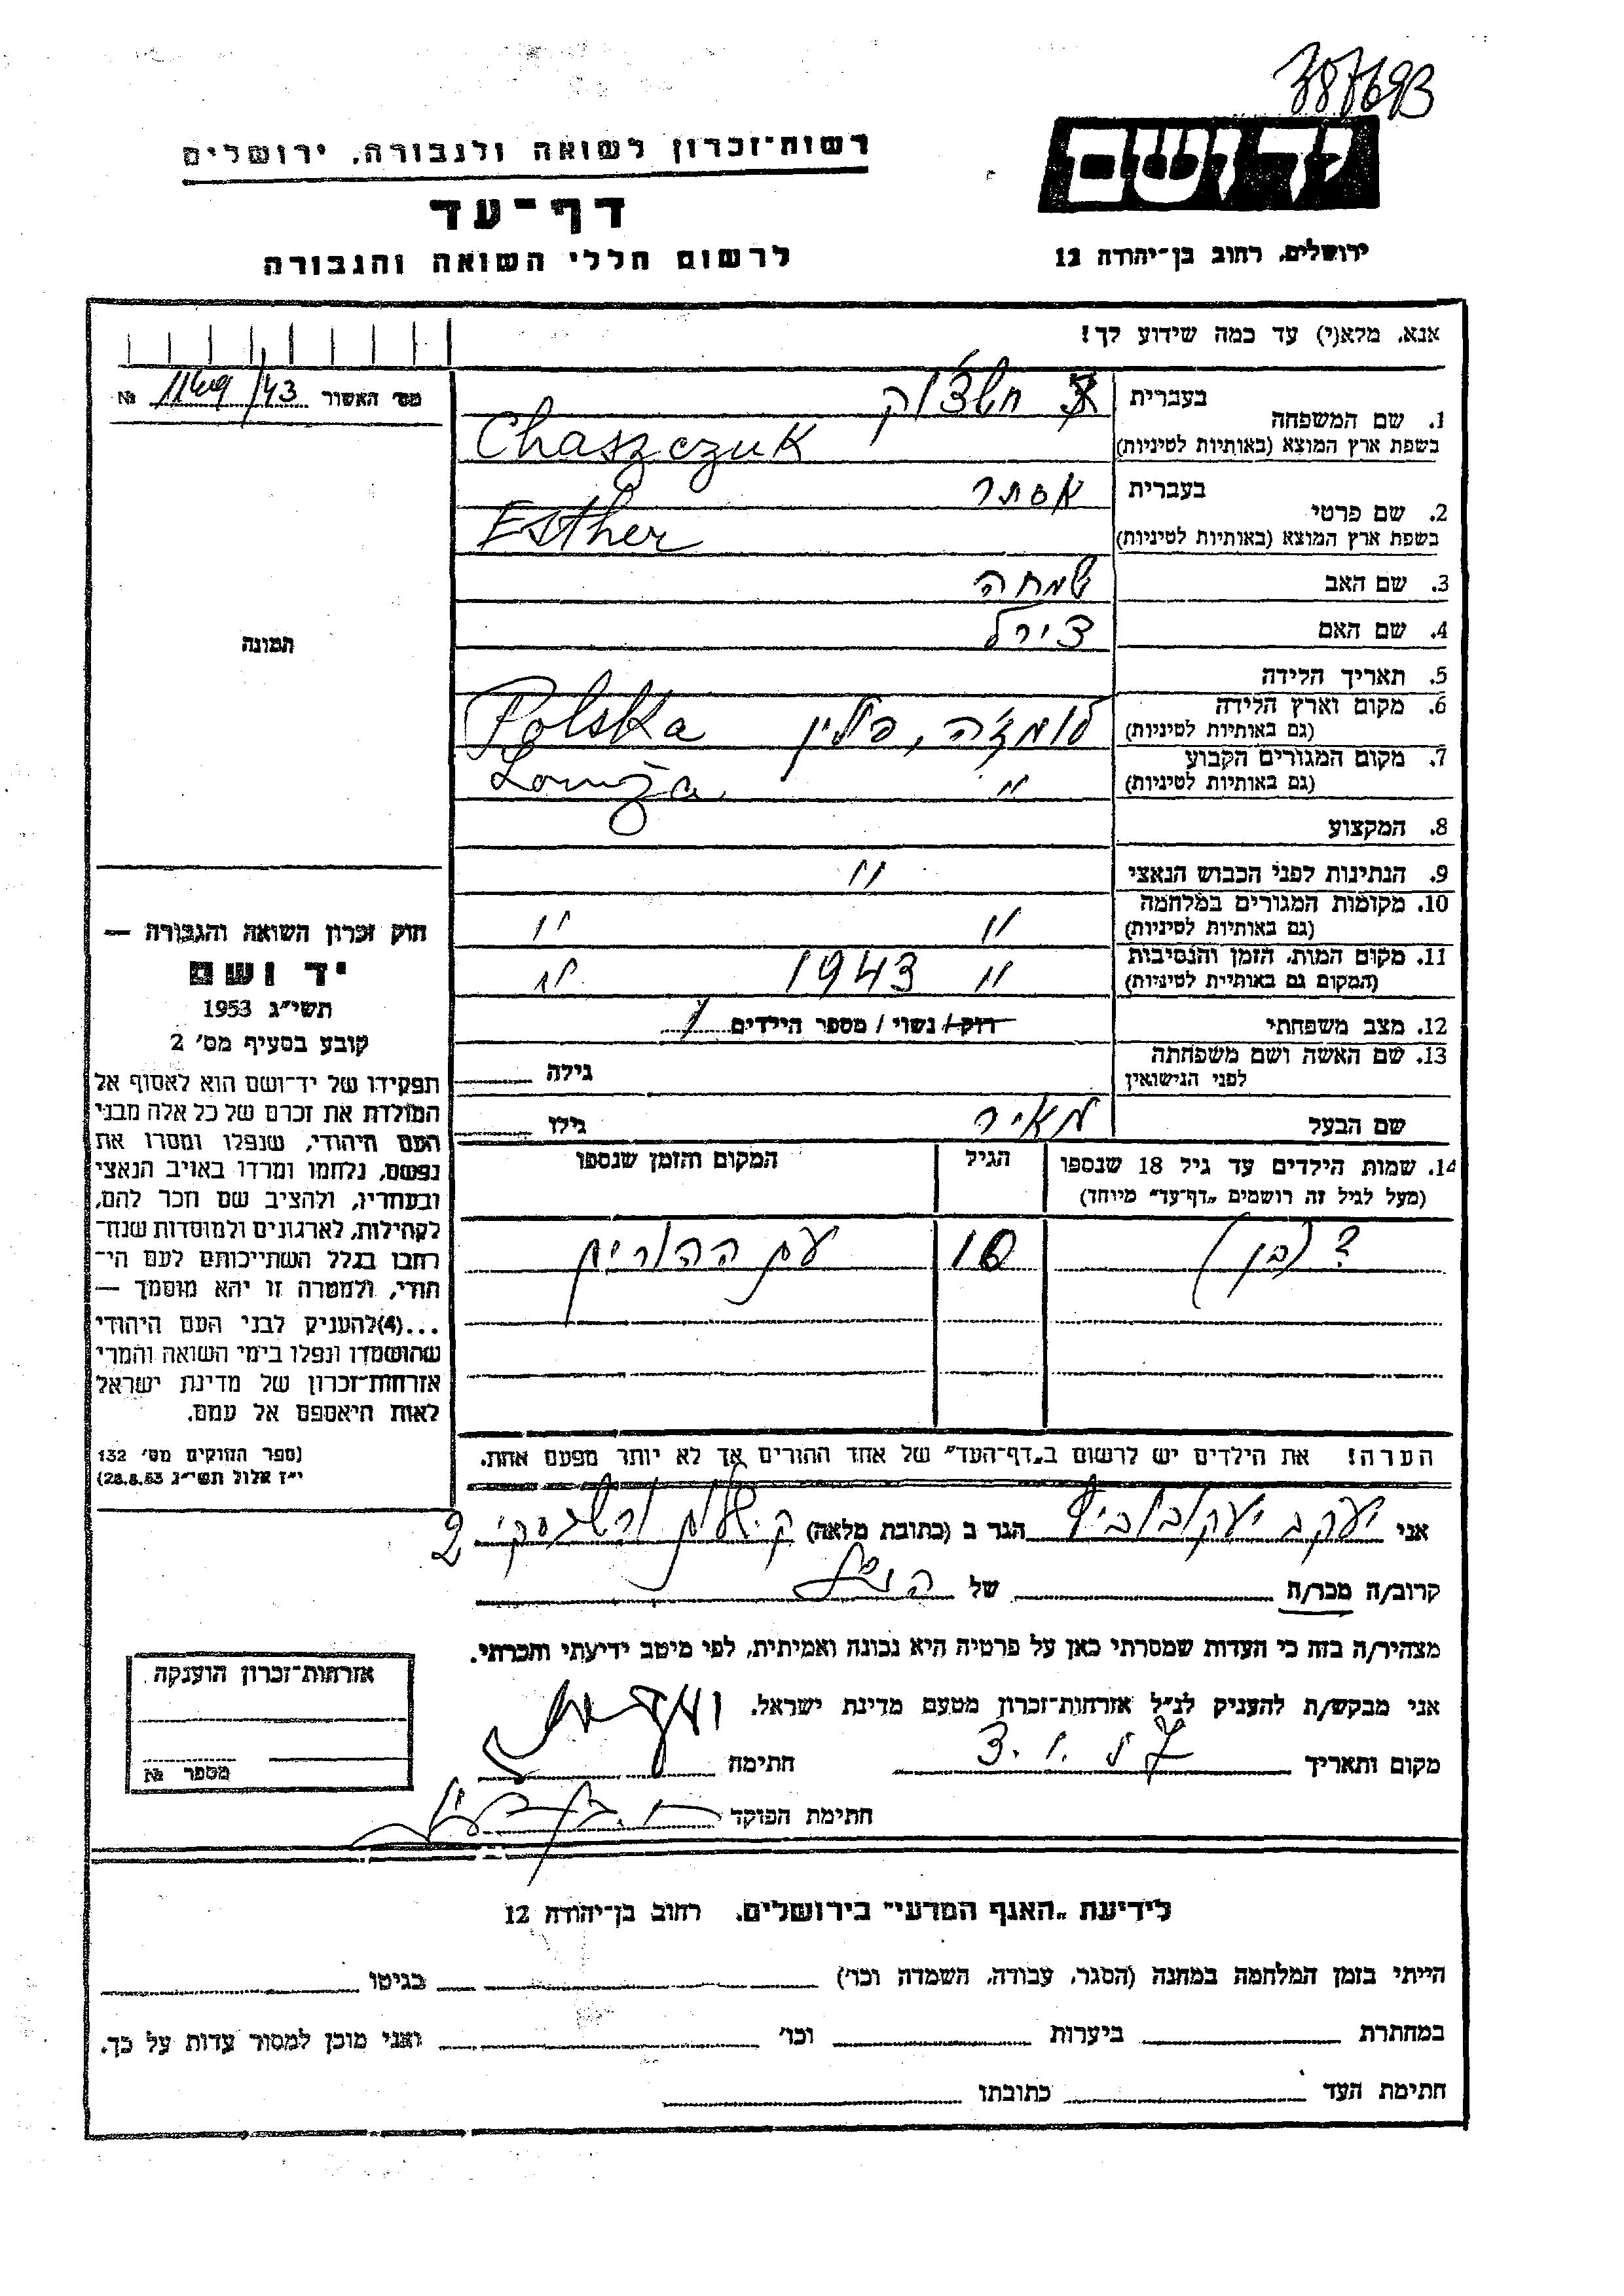 387693
יד ושם
ירושלים, רחוב בן-יהודה 12
רשות-זכרון לשואה ולגבורה, ירושלים
דף-עד
לרשום חללי השואה והגבורה
אנא, מלא(י) עד כמה שידוע לך!
מס' האשור 1149/43 №
1. שם המשפחה
בעברית חשצ'וק
בשפת ארץ המוצא (באותיות לטיניות) Chaszczuk
2. שם פרטי
בעברית אסתר
בשפת ארץ המוצא (באותיות לטיניות) Esther
3. שם האב שמחה
4. שם האם צירל
5. תאריך הלידה
6. מקום וארץ הלידה לומז'ה, פולין Polska
(גם באותיות לטיניות)
7. מקום המגורים הקבוע " Łomża
(גם באותיות לטיניות)
8. המקצוע
9. הנתינות לפני הכבוש הנאצי "
10. מקומות המגורים במלחמה " "
(גם באותיות לטיניות)
11. מקום המות, הזמן והנסיבות " 1943 "
(המקום גם באותיות לטיניות)
12. מצב משפחתי רוק/ נשוי / מספר הילדים 1
13. שם האשה ושם משפחתה גילה
לפני הנישואין
שם הבעל מאיר גילו
14. שמות הילדים עד גיל 18 שנספו הגיל המקום והזמן שנספו
(מעל לגיל זה רושמים „דף-עד" מיוחד)
? (בן) 10 עם ההורים
הערה! את הילדים יש לרשום ב„דף-העד" של אחד ההורים אך לא יותר מפעם אחת.
תמונה
חוק זכרון השואה והגבורה —
יד ושם
תשי"ג 1953
קובע בסעיף מס' 2
תפקידו של יד-ושם הוא לאסוף אל
המולדת את זכרם של כל אלה מבני
העם היהודי, שנפלו ומסרו את
נפשם, נלחמו ומרדו באויב הנאצי
ובעוזריו, ולהציב שם וזכר להם,
לקהילות, לארגונים ולמוסדות שנח-
רבו בגלל השתייכותם לעם הי-
הודי, ולמטרה זו יהא מוסמך —
...(4)להעניק לבני העם היהודי
שהושמדו ונפלו בימי השואה והמרי
אזרחות-זכרון של מדינת ישראל
לאות היאספם אל עמם.
(ספר החוקים מס' 132
י"ז אלול תשי"ג 28.8.53)
אני יעקב יעקובוביץ הגר ב (כתובת מלאה) ק. שלום 2
קרוב/ה מכר/ה של הנ"ל
מצהיר/ה בזה כי העדות שמסרתי כאן על פרטיה היא נכונה ואמיתית, לפי מיטב ידיעתי והכרתי.
אני מבקש/ת להעניק לנ"ל אזרחות-זכרון מטעם מדינת ישראל.
מקום ותאריך חתימה
חתימת הפוקד
אזרחות-זכרון הוענקה
מספר №
לידיעת „האגף המדעי" בירושלים, רחוב בן-יהודה 12
הייתי בזמן המלחמה במחנה (הסגר, עבודה, השמדה וכו') בגיטו
במחתרת ביערות וכו' ואני מוכן למסור עדות על כך.
חתימת העד כתובתו